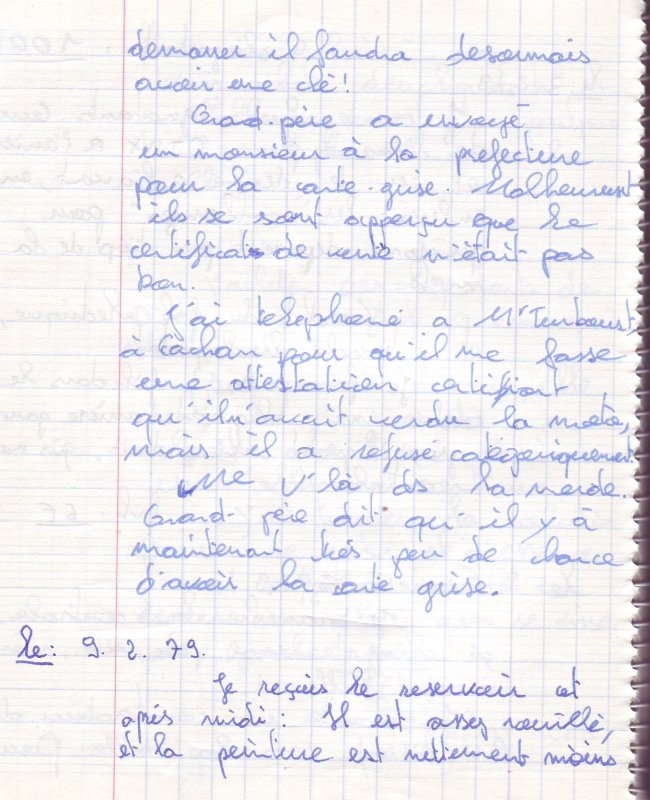 demarrer il faudra desormais
avoir une clé!
Grand-père a envoyé
un monsieur à la prefecture
pour la carte-grise. Malheureusmt
ils se sont apperçu que le
certificat de vente n'était pas
bon.
J'ai téléphoné a Mr
à Cachan pour qu'il me fasse
une attestation certifiant
qu'il m'avait vendu la moto,
mais il a refusé catégoriquement.
Me v'là ds la merde.
Grand-père dit qu'il y à
maintenant très peu de chance
d'avoir la carte grise.
Le: 9. 2. 79.
Je reçois le reservoir cet
après midi: Il est assez rouillé,
et la peinture est nettement moins